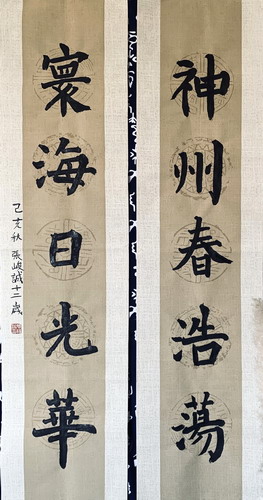 神州春浩蕩
寰海日光華
己亥秋 張峻誠十二歲